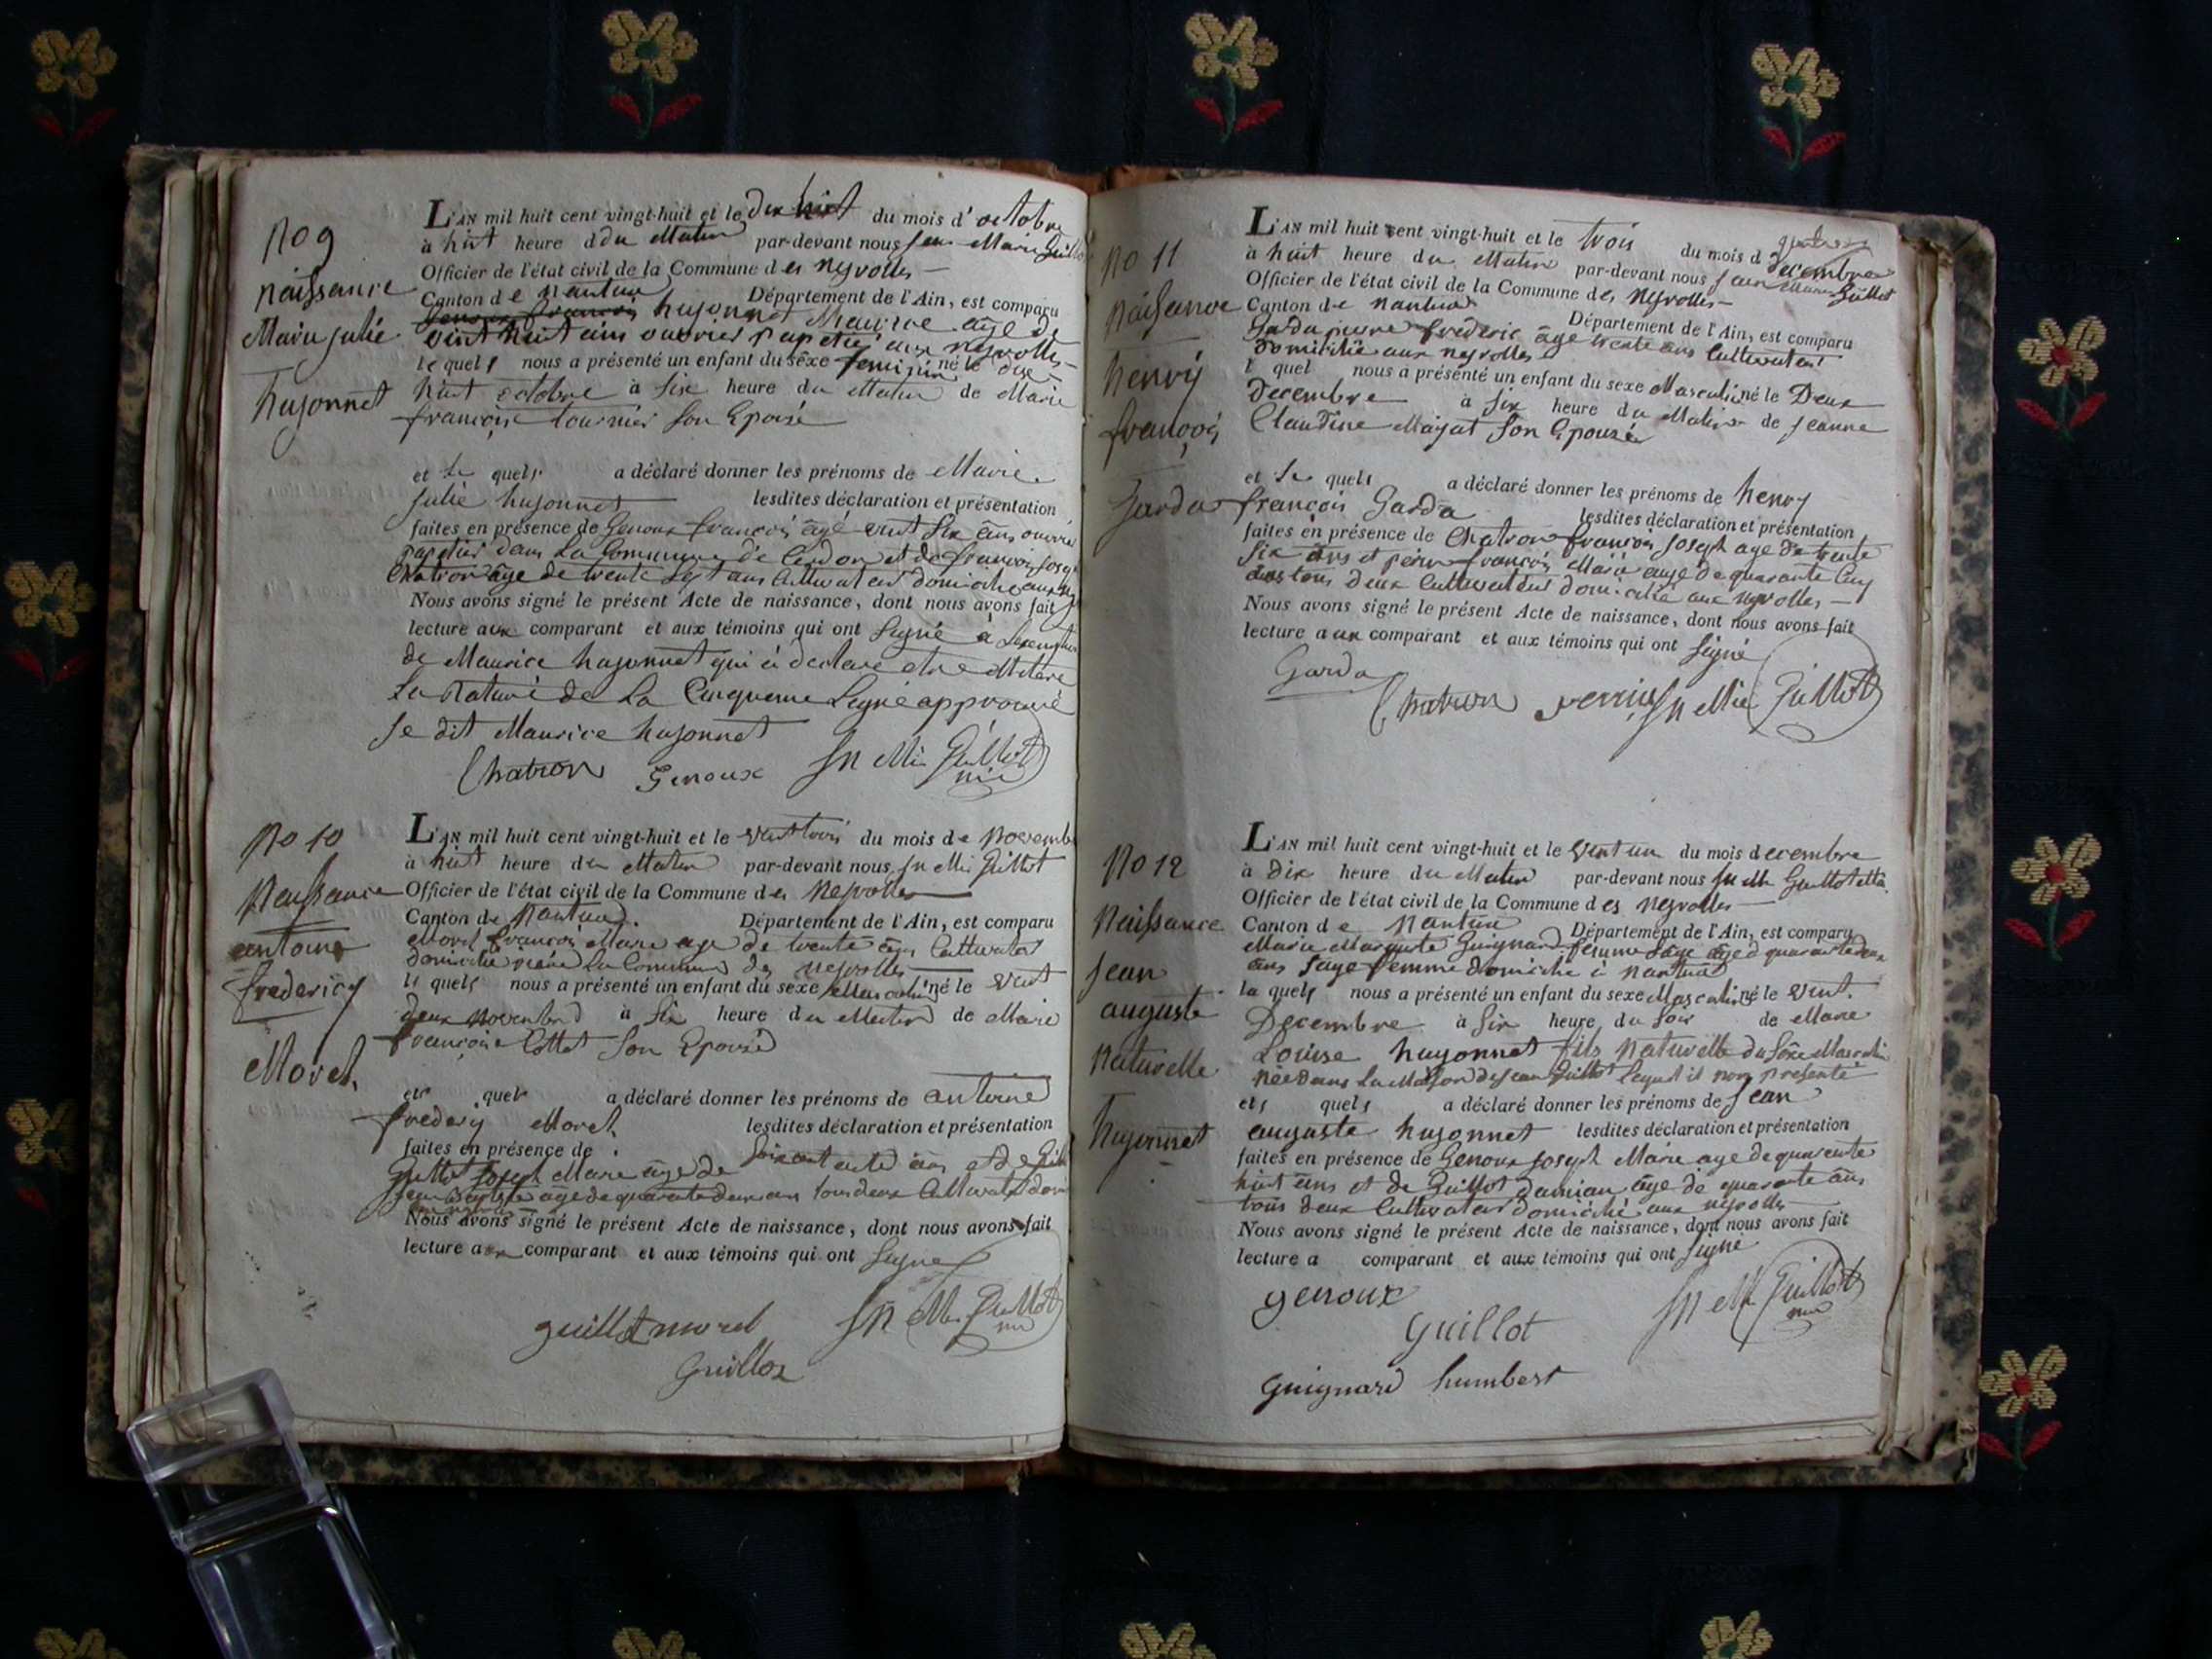 No 9
naissance
Marie julie
hujonnet
L'AN mil huit cent vingt-huit et le dix huit du mois d' octobre
à huit heure d du Matin par-devant nous jean Marie Guillot
Officier de l'état civil de la Commune d es neyrolles
Canton d e nantua Département de l'Ain, est comparu
hujonnet Maurice âge de
vint huit ans ouvrier papetier aux neyrolles
le quel nous a présenté un enfant du sèxe feminin né le dix
huit octobre à six heure du Matin de Marie
françoise tournier son Epouse
et le quel a déclaré donner les prénoms de Marie
julie hujonnet lesdites déclaration et présentation
faites en présence de Genoux françois âgé vint six ans ouvrier
papetier dans la Commune de Cerdon et de françois joseph
Chatron âge de trente sept ans Cultivateur domicilie aux
Nous avons signé le présent Acte de naissance, dont nous avons fait
lecture aux comparant et aux témoins qui ont signé à
de Maurice hujonnet qui à declare etre
La Rature de La Cinquieme Ligne approuvé
se dit Maurice hujonnet
Chatron Genoux Jn Mie Guillot
No 10
Naissance
antoine
frederic
Morel
L'AN mil huit cent vingt-huit et le vint trois du mois de Novembre
à huit heure du Matin par-devant nous Jn Mie Guillot
Officier de l'état civil de la Commune des Neyrolles
Canton de Nantua Département de l'Ain, est comparu
Morel françois Marie age de trente ans Cultivateur
domicilie la Commune des neyrolles
le quel nous a présenté un enfant du sexe Masculin né le vint
deux Novembre à six heure du Matin de Marie
françoise Collet son Epouse
et quel a déclaré donner les prénoms de antoine
frederic Morel lesdites déclaration et présentation
faites en présence de
Guillot joseph Marie âge de ans et de
jean âge de quarante deux ans tous deux Cultivateur
Nous avons signé le présent Acte de naissance, dont nous avons fait
lecture aux comparant et aux témoins qui ont signe
guillot morel Jn Mie Guillot
Guillot
No 11
Naisance
henry
françois
Garda
L'AN mil huit cent vingt-huit et le trois du mois d decembre
à huit heure du Matin par-devant nous jean Marie Guillot
Officier de l'état civil de la Commune des Neyrolles
Canton de nantua Département de l'Ain, est comparu
Garda pierre frederic âge trente ans Cultivateur
domicilié aux neyrolles
l quel nous a présenté un enfant du sexe Masculin né le Deux
decembre à six heure du Matin de jeanne
Claudine Majat son Epouse
et le quel a déclaré donner les prénoms de henry
françois Garda lesdites déclaration et présentation
faites en présence de Chatron françois joseph age de trente
six ans et perrin françois Marie aage de quarante Cinq
ans tous deux Cultivateur domicilié aux neyrolles
Nous avons signé le présent Acte de naissance, dont nous avons fait
lecture aux comparant et aux témoins qui ont signé
Garda
Chatron perrin Jn Mie Guillot
No 12
Naissance
jean
auguste
Naturelle
hujonnet
L'AN mil huit cent vingt-huit et le vint un du mois decembre
à dix heure du Matin par-devant nous Jn Mie Guillot
Officier de l'état civil de la Commune d es neyrolles
Canton d e Nantua Département de l'Ain, est comparu
Marie Marguerite Guignard femme âge d quarante deux
ans sage femme domicilie à nantua
la quel nous a présenté un enfant du sexe Masculin né le vint
Decembre à six heure du soir de Marie
Louise hujonnet fils naturelle du sexe Masculin
née dans la Maison de jean Guillot lequel presenté
et quel a déclaré donner les prénoms de jean
auguste hujonnet lesdites déclaration et présentation
faites en présence de Genoux joseph Marie age de quarente
huit ans et de Guillot damian âge de quarante ans
tous deux Cultivateur domicilié aux neyrolles
Nous avons signé le présent Acte de naissance, dont nous avons fait
lecture a comparant et aux témoins qui ont signé
genoux
Guillot Jn Mie Guillot
Guignard humbert